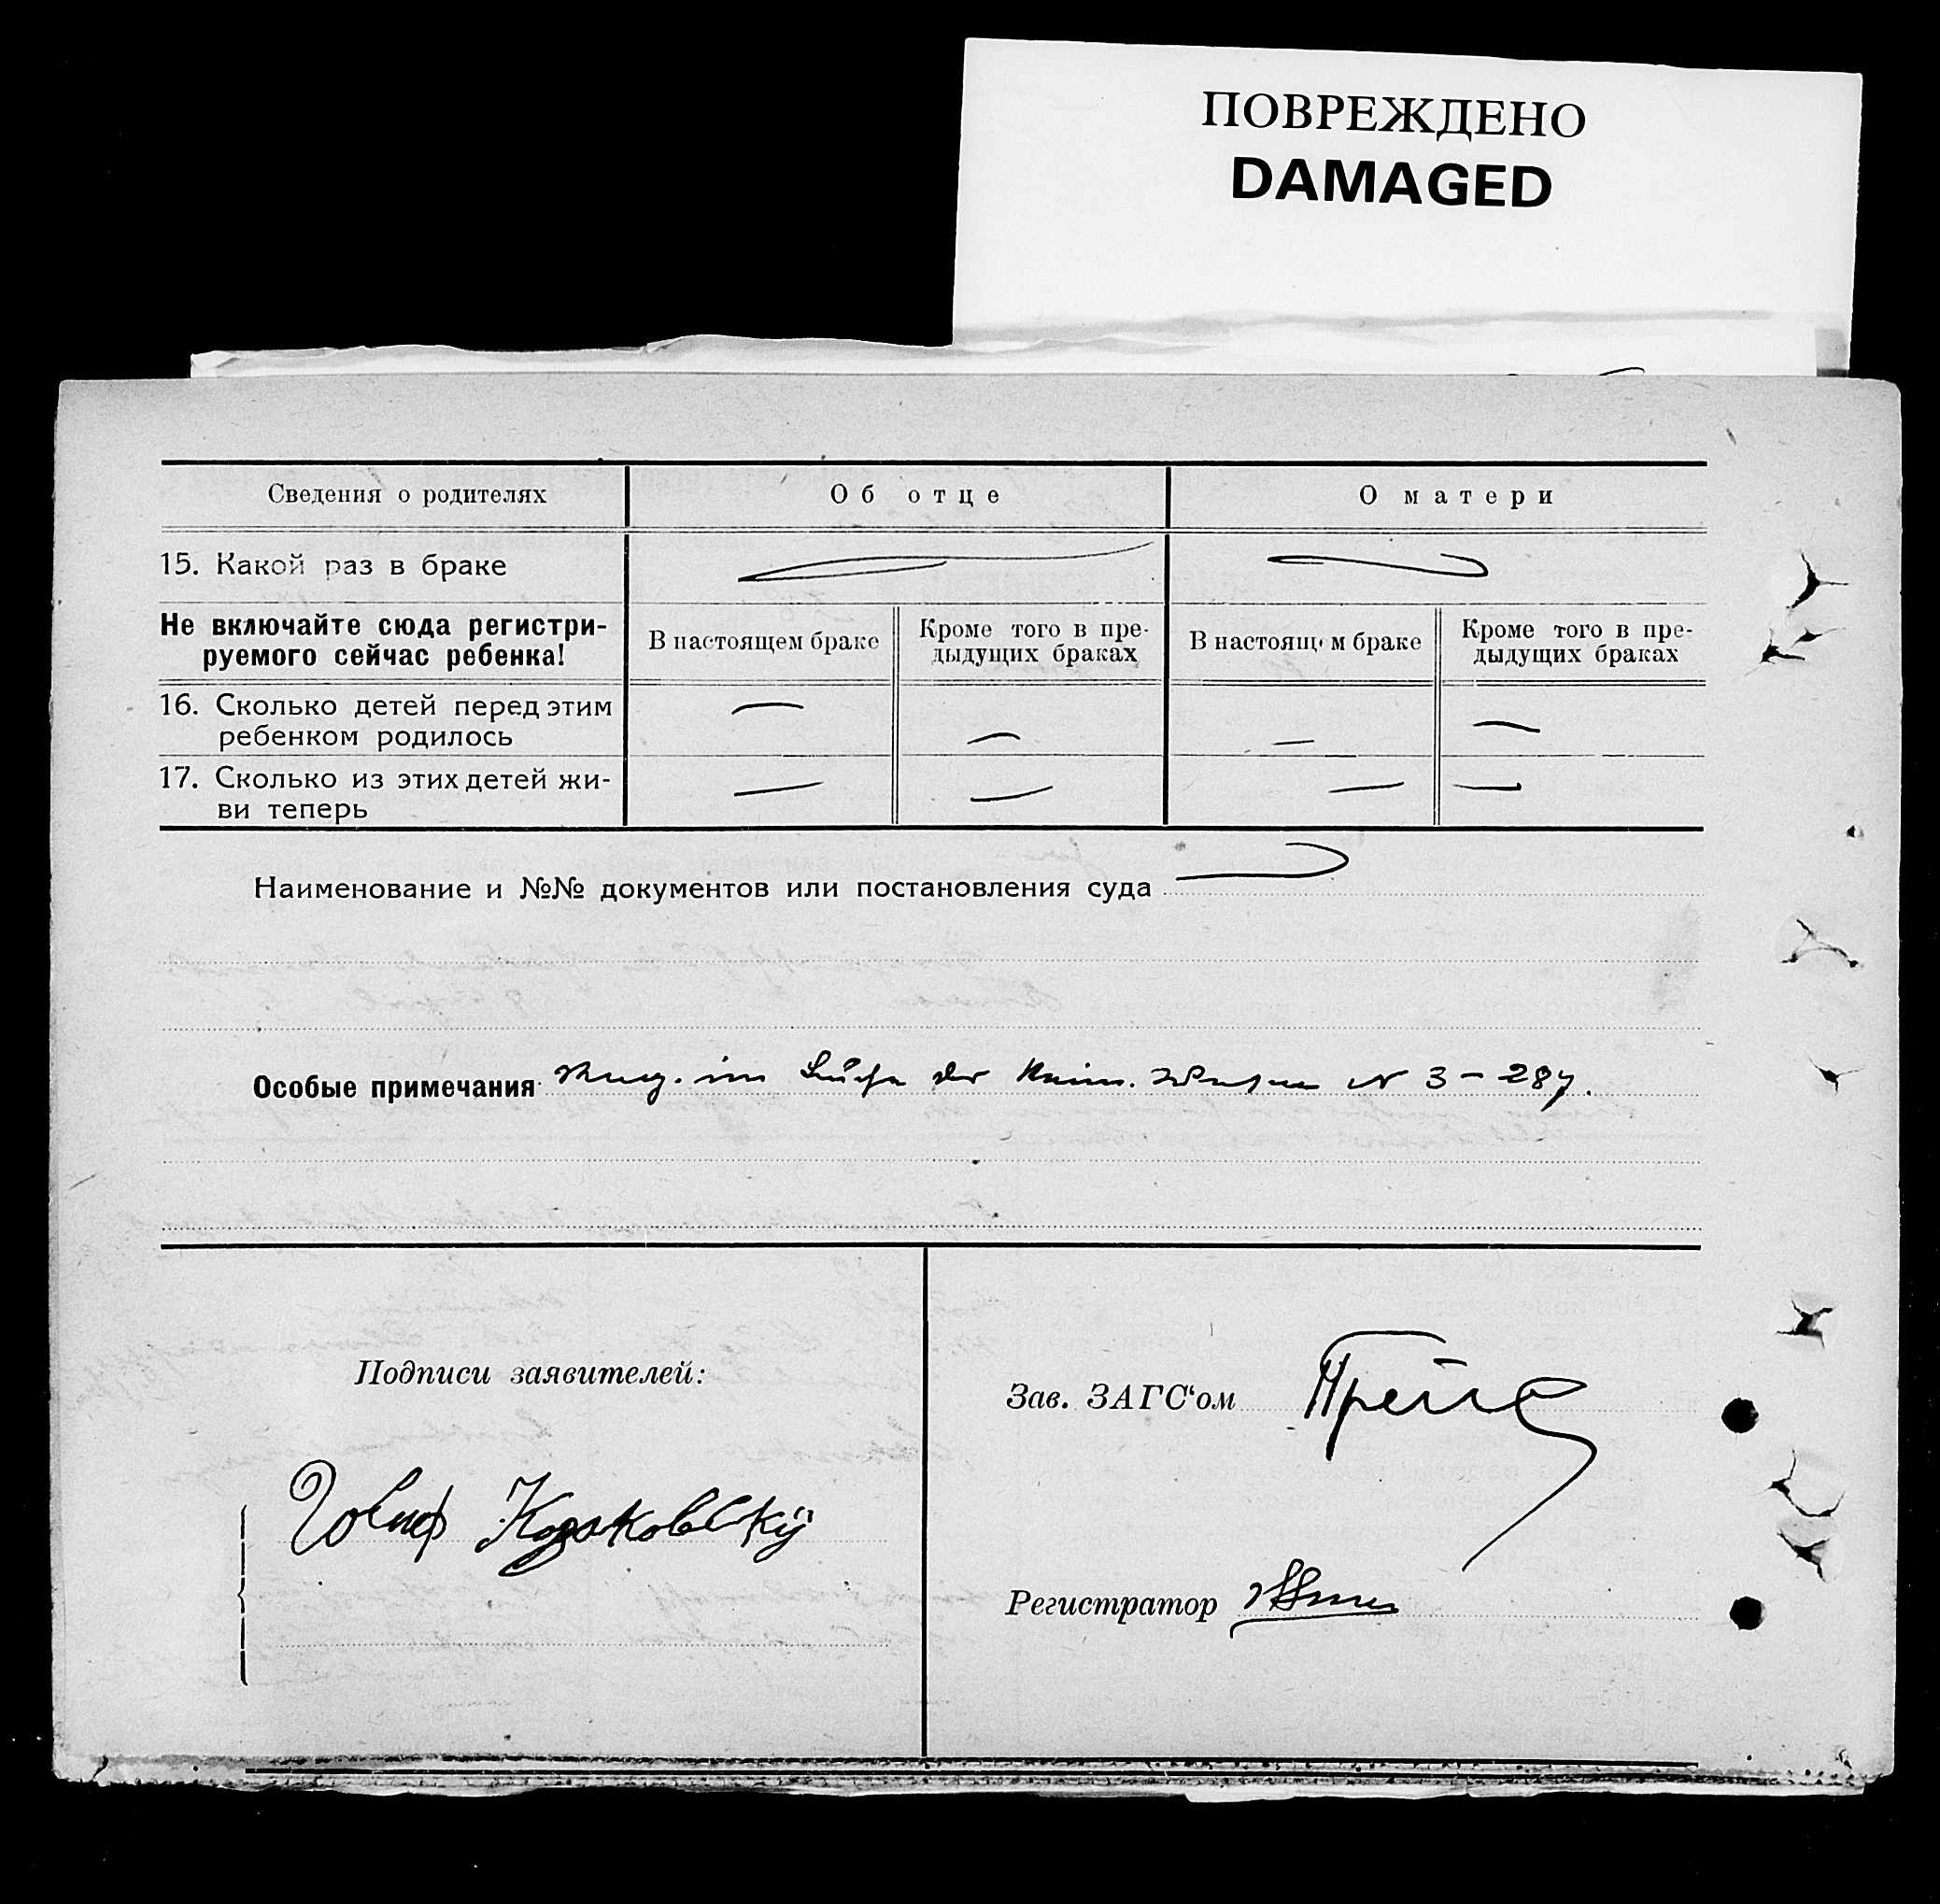 ПОВРЕЖДЕНО
DAMAGED
Сведения о родителях
Об отце
О матери
15. Какой раз в браке
Не включайте сюда регистри-
руемого сейчас ребенка!
В настоящем браке
Кроме того в пре-
дыдущих браках
В настоящем браке
Кроме того в пре-
дыдущих браках
16. Сколько детей перед этим
ребенком родилось
17. Сколько из этих детей жи-
ви теперь
Наименование и №№ документов или постановления суда
Особые примечания im der N 3 – 287.
Подписи заявителей:
Зав. ЗАГС'ом
Регистратор